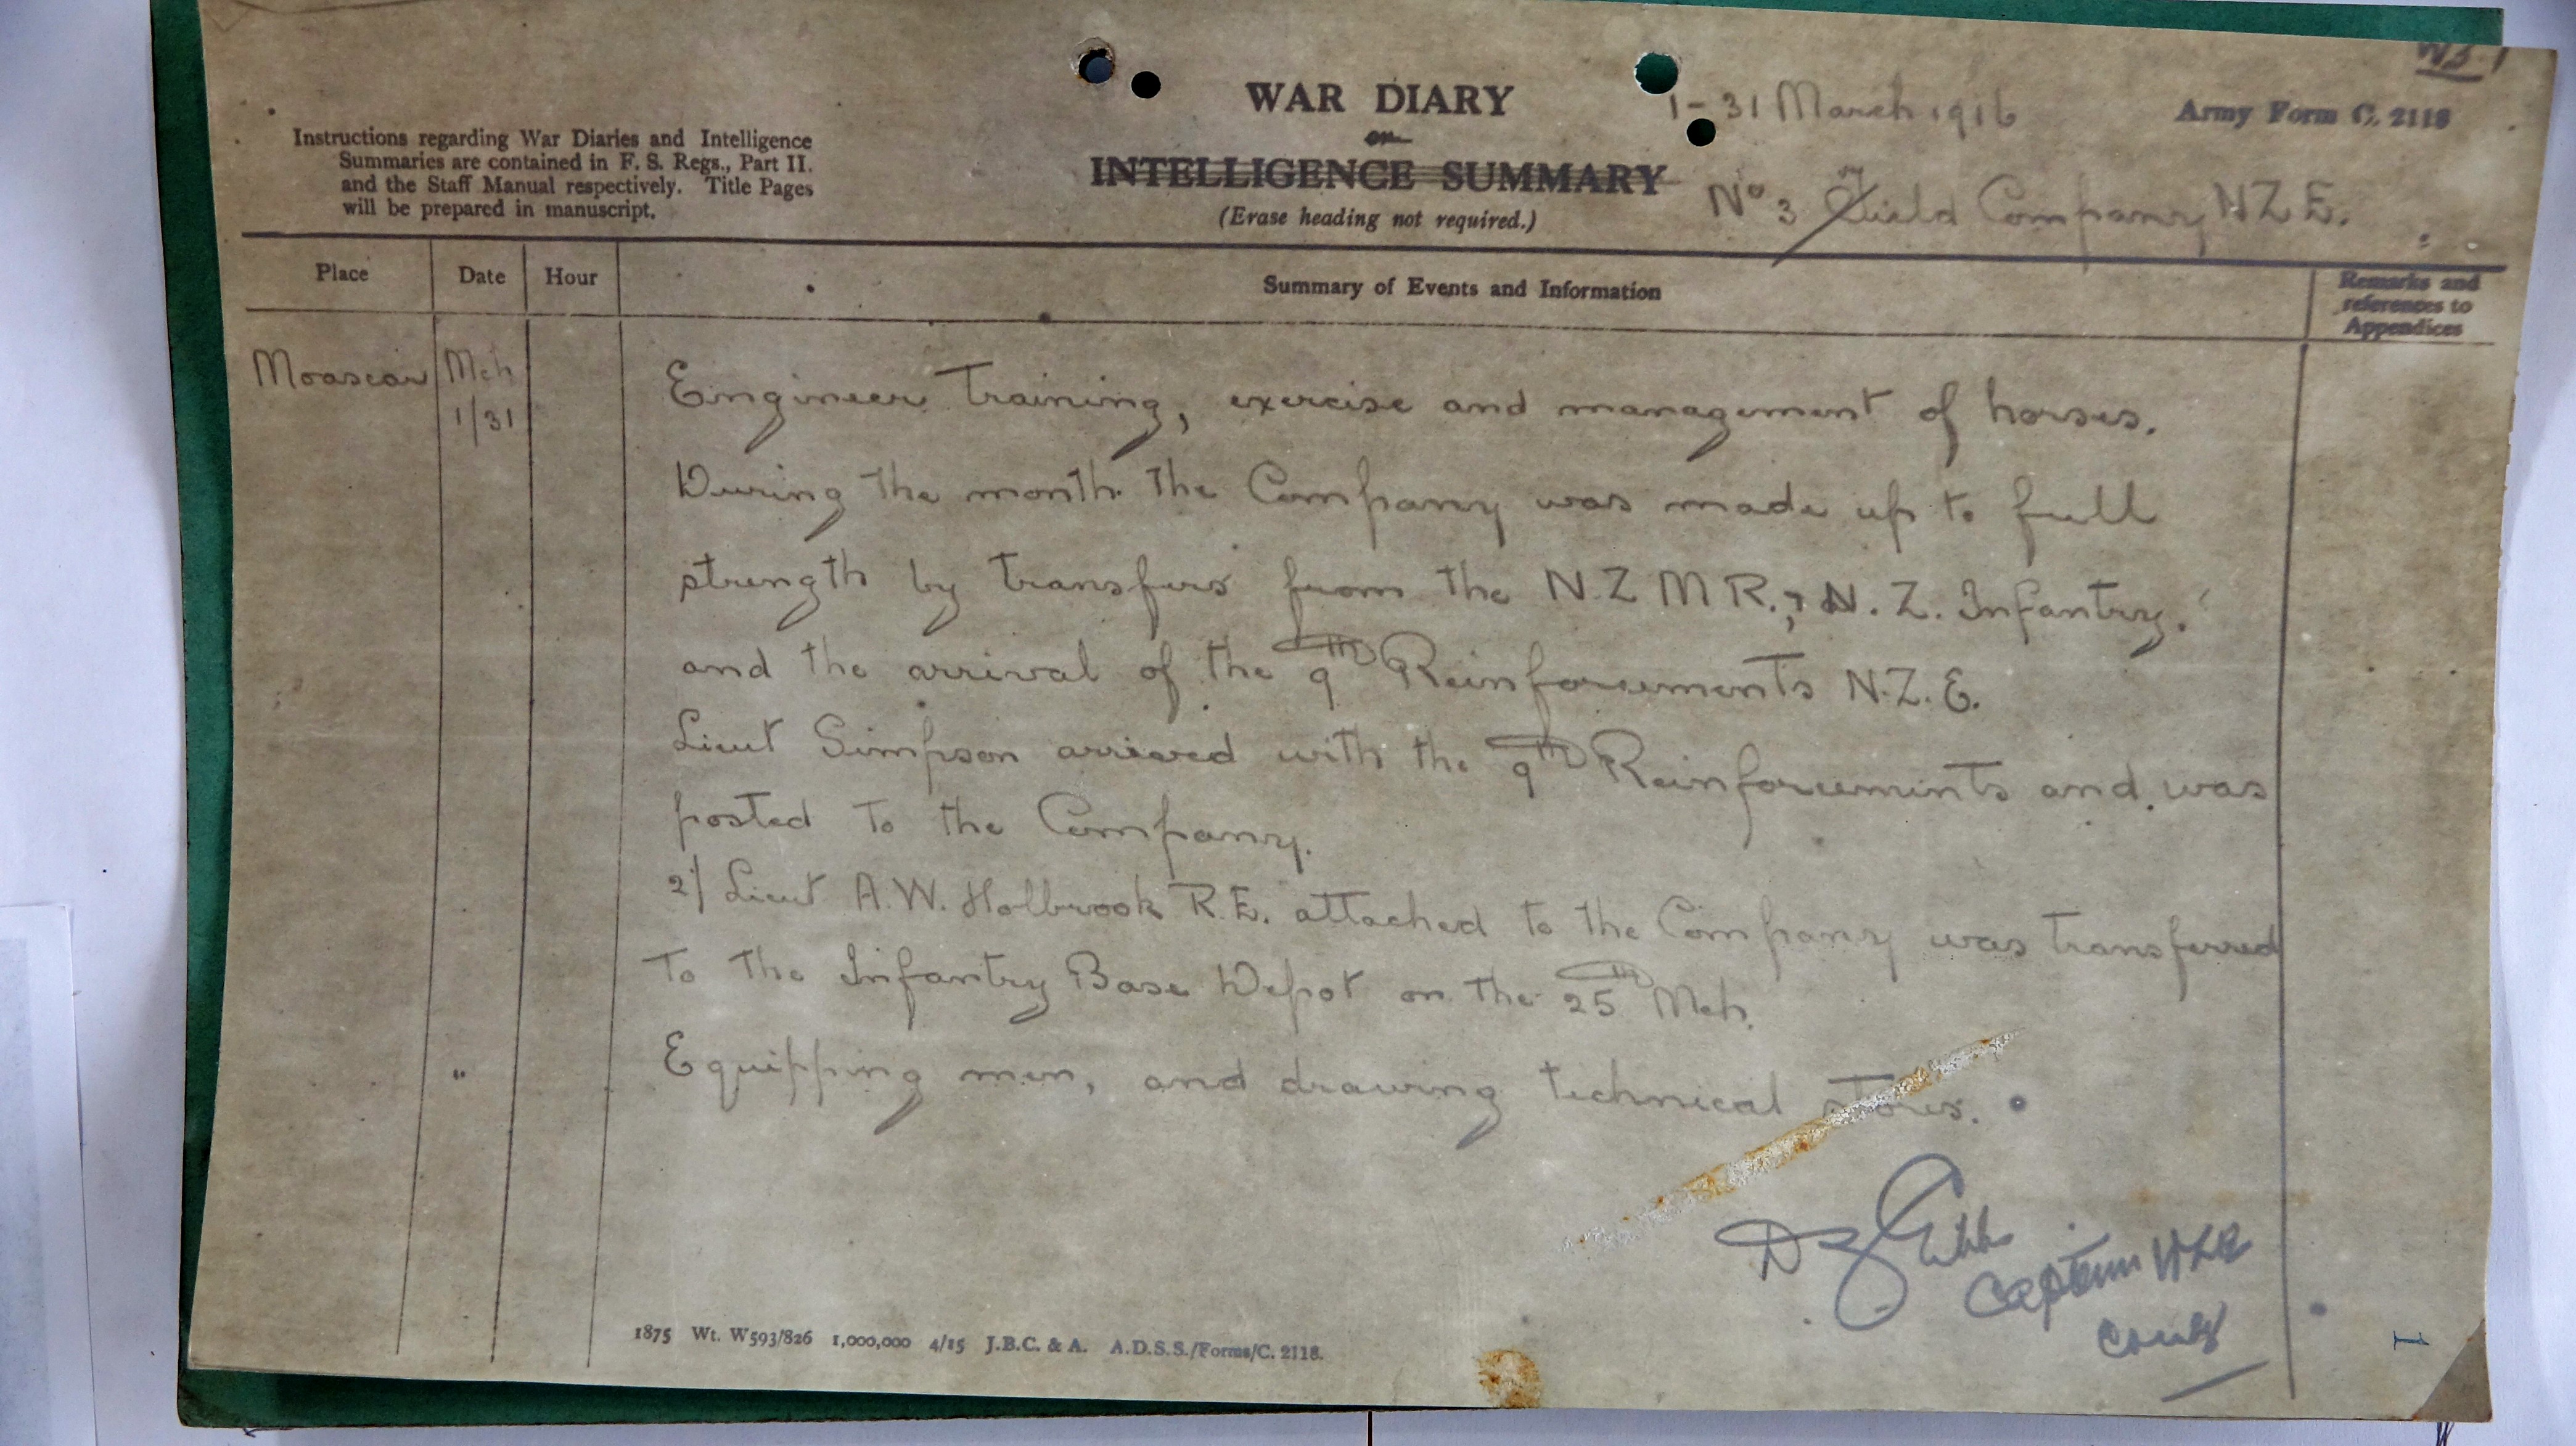 WAR DIARY
or
INTELLIGENCE SUMMARY
(Erase heading not required.)
Instructions regarding War Diaries and Intelligence
Summaries are contained in F. S. Regs., Part II.
and the Staff Manual respectively. Title Pages
will be prepared in manuscript.
1-31 March 1916
Army Form C. 2118
No 3 Field Company NZE.
Place
Date
Hour
Summary of Events and Information
Remarks and
references to
Appendices
Moascar
Mch
1/31
Engineer Training, exercise and management of horses.
During the month the Company was made up to full
strength by transfers from the N.Z M R., N. Z. Infantry.
and the arrival of the 9th Reinforcements N.Z.E.
Lieut Simpson arrived with the 9th Reinforcements and was
posted to the Company.
2/Lieut A.W. Holbrook R.E. attached to the Company was transferred
to the Infantry Base Depot on the 25th Mch.
"
Equipping men, and drawing technical stores.
Gibbs
Captain NZE
1875 Wt. W593/826 1,000,000 4/15 J.B.C. & A. A.D.S.S./Forms/C. 2118.
1